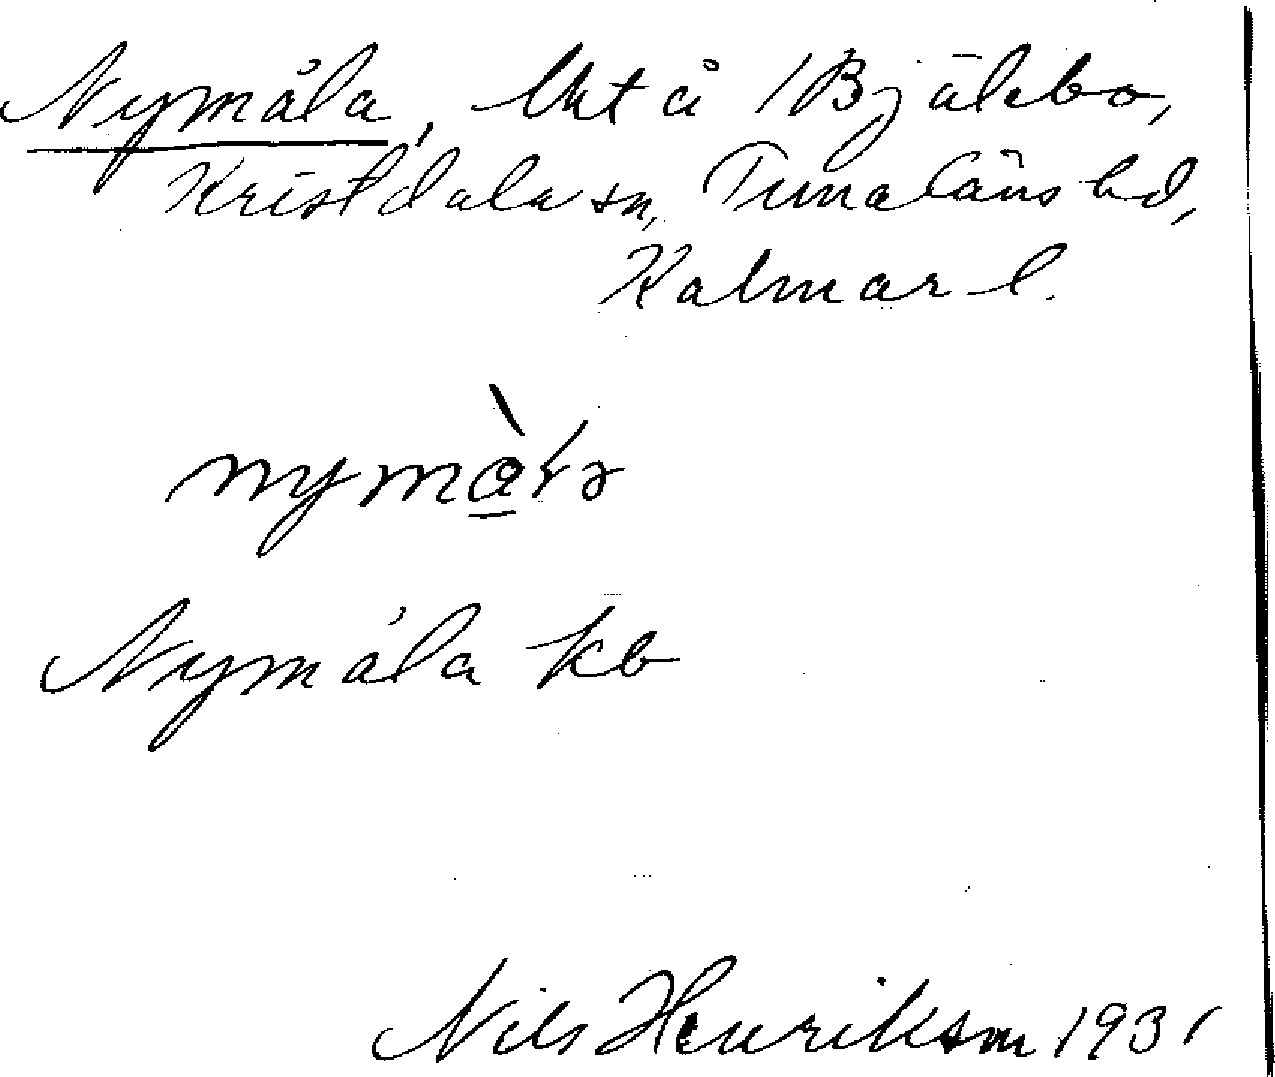 Nymåla, lht å Bjälebo,
Kristdala sn, Tunaläns hd,
Kalmar l.
nymàla
Nymåla kb
Nils Henrikson 1931